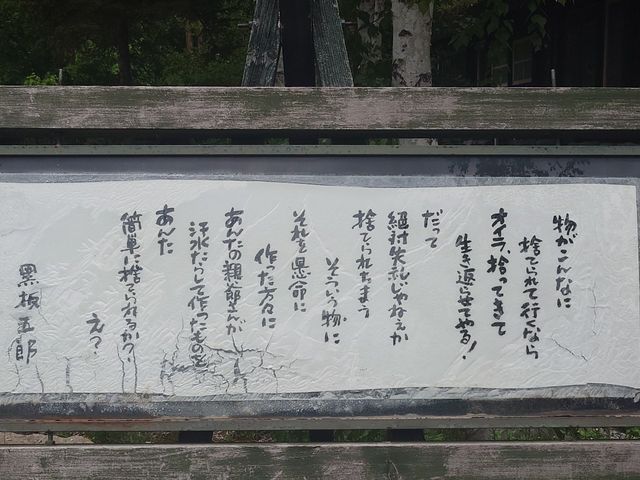 物がこんなに
捨てられて行くなら
オイラ、拾ってきて
生き返らせてやる!
だって
絶対失礼じゃねぇか
捨てられちまう
そういう物に
それを懸命に
作った方々に
あんたの親爺が
汗水たらして作ったものを
あんた
簡単に捨てられるか?
え?
黒板五郎